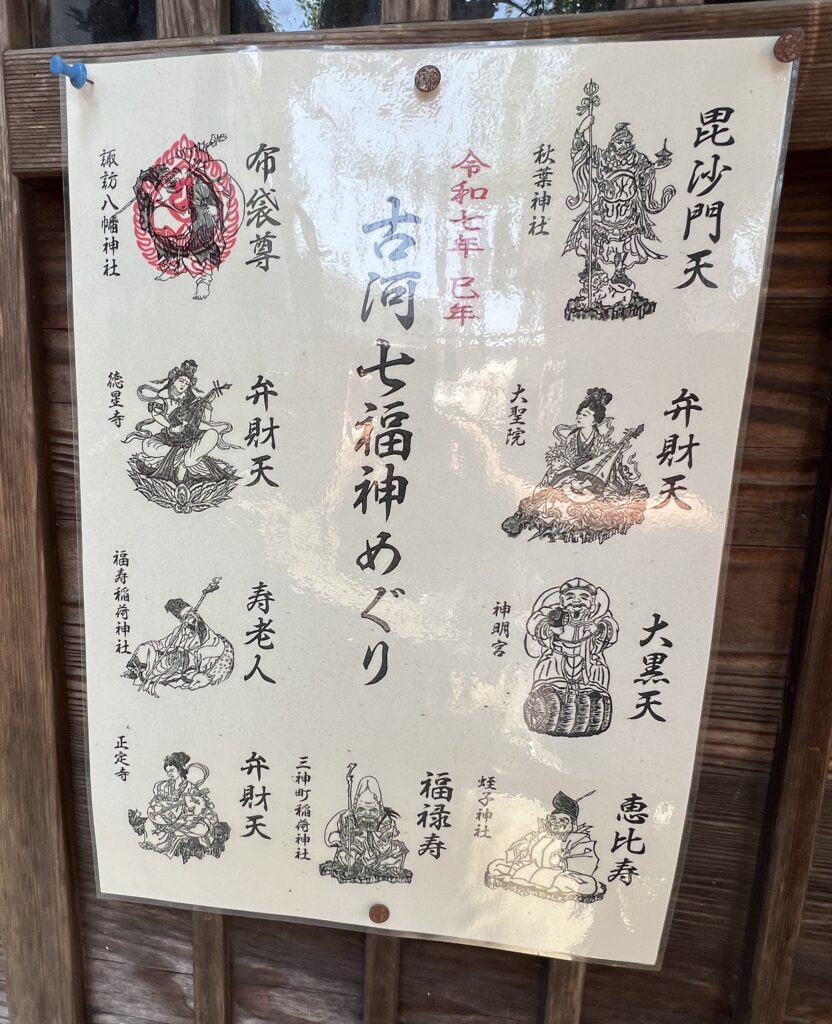 毘沙門天
秋葉神社
弁財天
大聖院
大黒天
神明宮
恵比寿
蛭子神社
令和七年 巳年
古河七福神めぐり
福禄寿
三神町稲荷神社
布袋尊
諏訪八幡神社
弁財天
徳星寺
寿老人
福寿稲荷神社
弁財天
正定寺